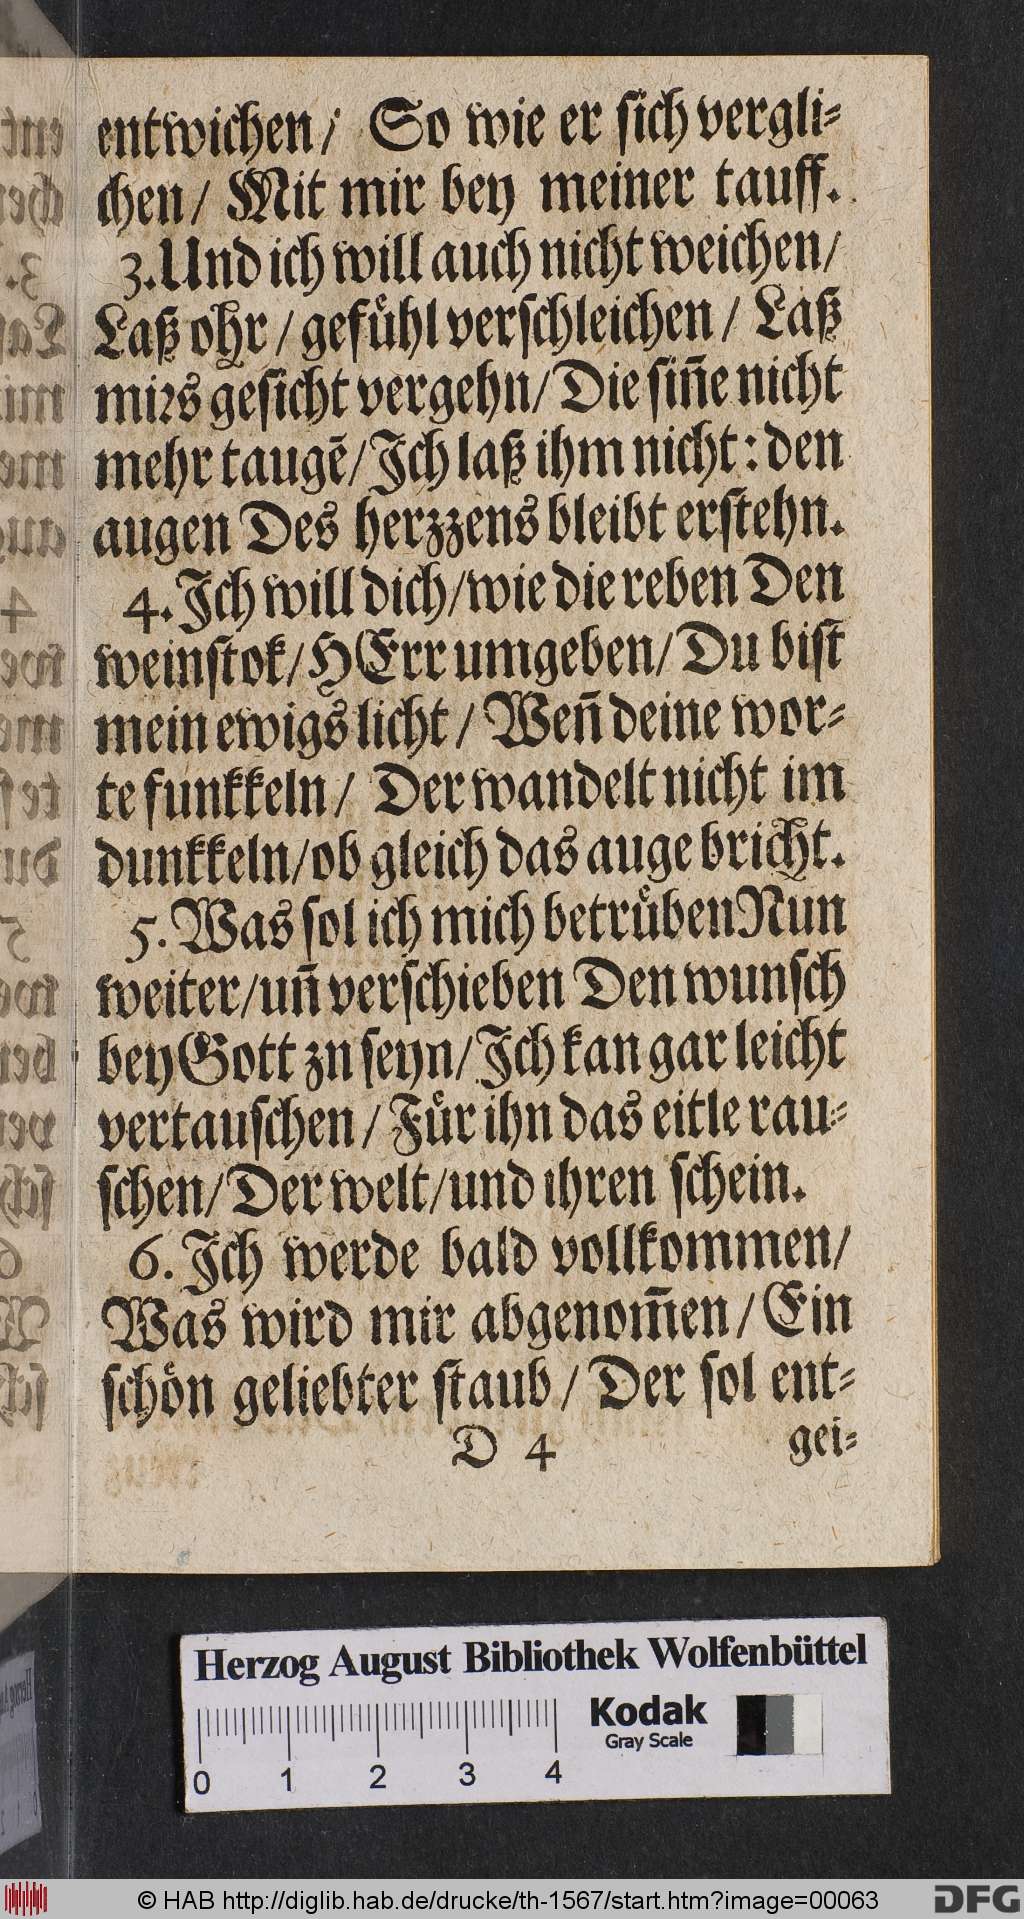 entwichen/ So wie er sich vergli-
chen/ Mit mir bey meiner tauff.
3. Und ich will auch nicht weichen/
Laß ohr/ gefuͤhl verschleichen/ Laß
mirs gesicht vergehn/ Die siñe nicht
mehr taugẽ/ Ich laß ihm nicht: den
augen Des herzzens bleibt erstehn.
4. Ich will dich/ wie die reben Den
weinstok/ HErr umgeben/ Du bist
mein ewigs licht/ Weñ deine wor-
te funkkeln/ Der wandelt nicht im
dunkkeln/ ob gleich das auge bricht.
5. Was sol ich mich betruͤben Nun
weiter/ uñ verschieben Den wunsch
bey Gott zn seyn/ Ich kan gar leicht
vertauschen/ Fuͤr ihn das eitle rau-
schen/ Der welt/ und ihren schein.
6. Ich werde bald vollkommen/
Was wird mir abgenom̃en/ Ein
schoͤn geliebter staub/ Der sol ent-
D 4 gei-
Herzog August Bibliothek Wolfenbüttel
Kodak
Gray Scale
0 1 2 3 4
© HAB http://diglib.hab.de/drucke/th-1567/start.htm?image=00063
DFG